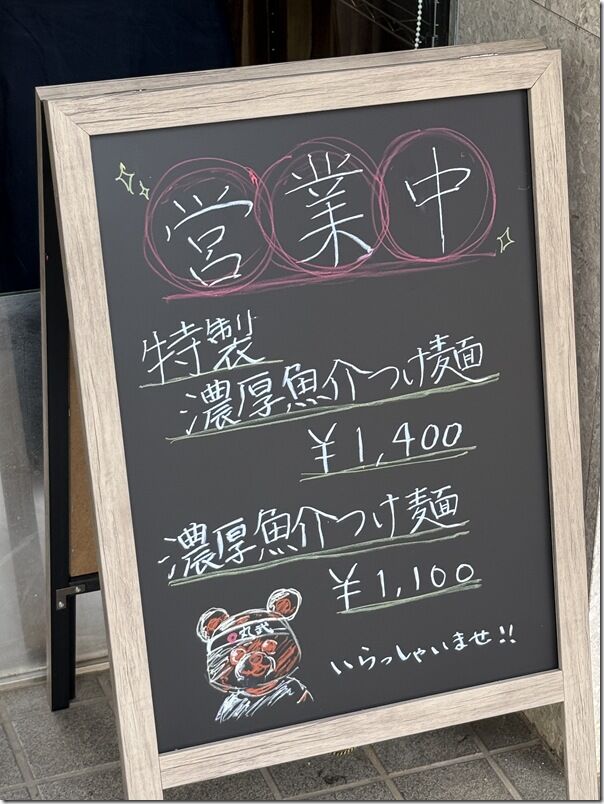 営業中
特製
濃厚魚介つけ麺
¥1,400
濃厚魚介つけ麺
¥1,100
いらっしゃいませ!!